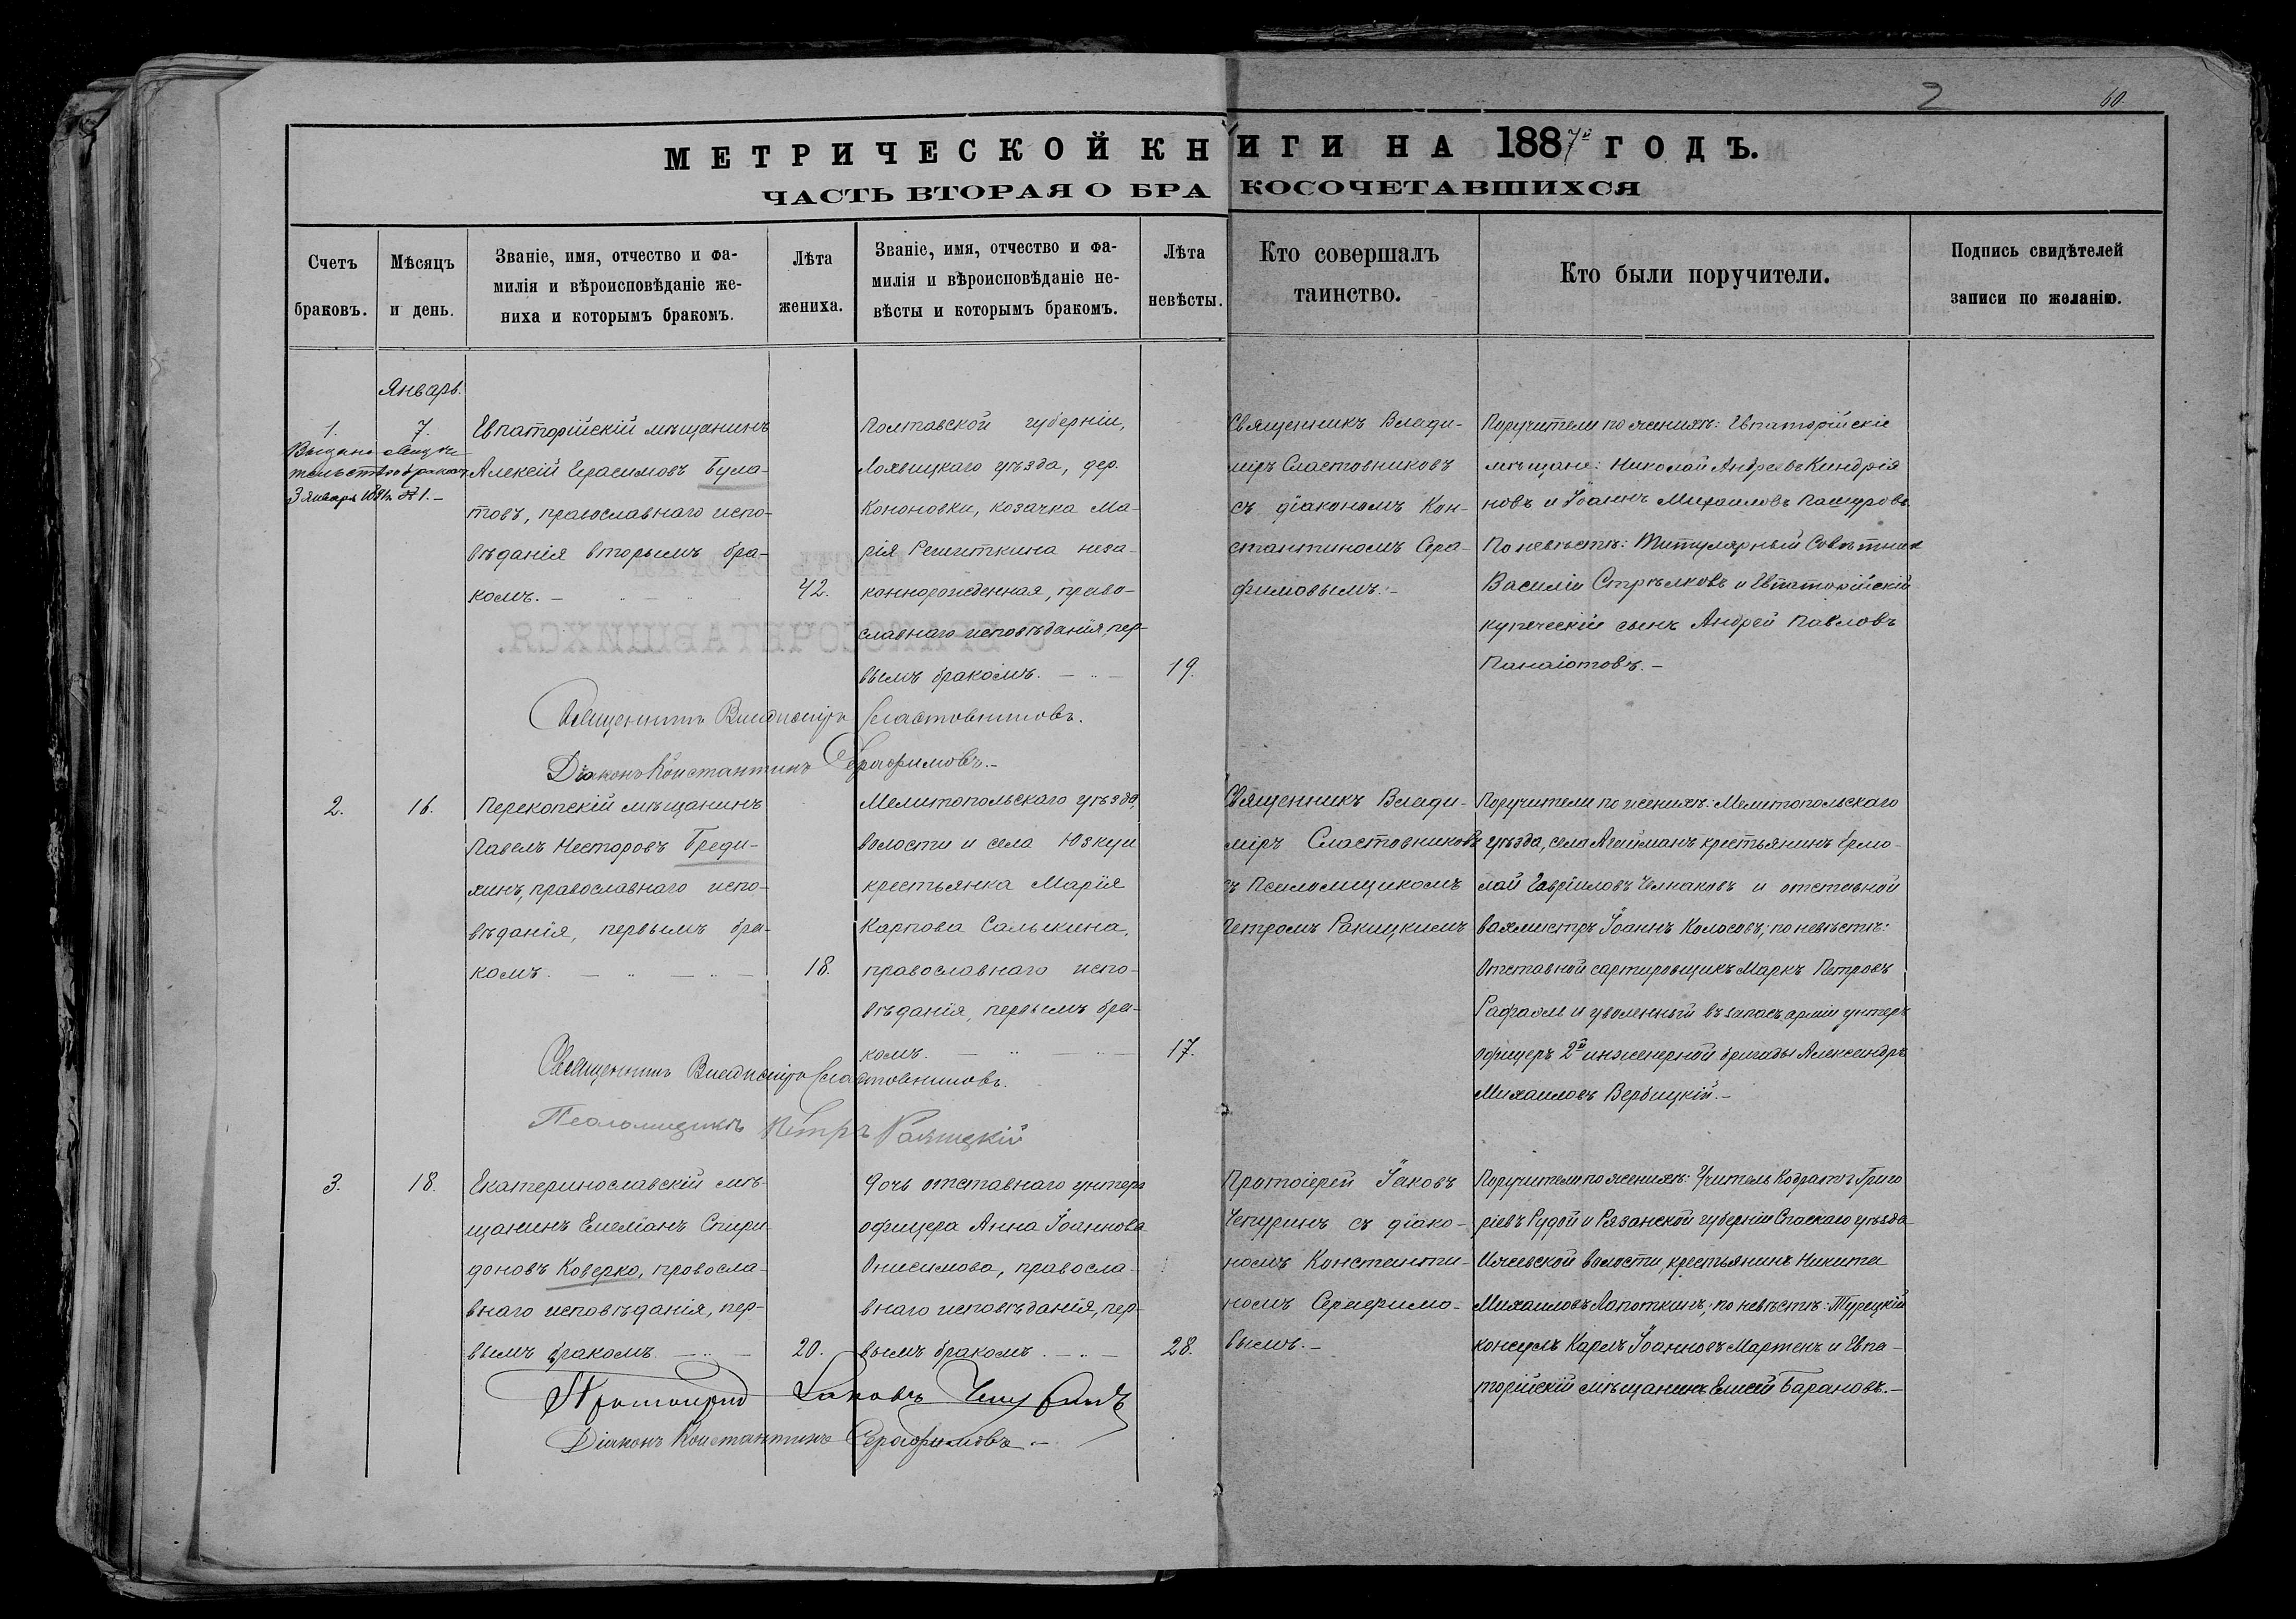 2 60
МЕТРИЧЕСКОЙ КНИГИ НА 1887й ГОДЪ.
ЧАСТЬ ВТОРАЯ О БРАКОСОЧЕТАВШИХСЯ
Счетъ
браковъ.
Мѣсяцъ
и день.
Званіе, имя, отчество и фа-
милія и вѣроисповѣданіе же-
ниха и которымъ бракомъ.
Лѣта
жениха.
Званіе, имя, отчество и фа-
милія и вѣроисповѣданіе не-
вѣсты и которымъ бракомъ.
Лѣта
невѣсты.
Кто совершалъ
таинство.
Кто были поручители.
Подпись свидѣтелей
записи по желанію.
Январь.
1.
Выдано свидѣ-
тельство о бракѣ
3 Января № 1.-
7.
Евпаторійскій мѣщанинъ
Алексій Герасимовъ Була-
товъ, православнаго испо-
вѣданія вторымъ бра-
комъ. -
42.
Полтавской губерніи,
Лохвицкаго уѣзда, дер.
Кононовки, козачка Ма-
рія Решеткина неза-
коннорожденная, право-
славнаго исповѣданія, пер-
вымъ бракомъ. -
19.
Священникъ Влади-
міръ Сластовниковъ
съ діакономъ Кон-
стантиномъ Сера-
фимовымъ. -
Поручители по женихѣ: Евпаторійскіе
мѣщане: Николай Андреевъ Киндрія
новъ и Іоаннъ Михаиловъ Пашуровъ
По невѣстѣ: Титулярный Совѣтник
Василій Стрѣлковъ и Евпаторійскій
купеческій сынъ Андрей Павловъ
Панаіотовъ. -
Священникъ Владиміръ Сластовниковъ.
Діаконъ Константинъ Серафимовъ. -
2.
16.
Перекопскій мѣщанинъ
Павелъ Несторовъ Бреди-
хинъ, православнаго испо-
вѣданія, первымъ бра-
комъ. -
18.
Мелитопольскаго уѣзда,
волости и села Юзкуи
крестьянка Марія
Карпова Салыкина,
православнаго испо-
вѣданія, первымъ бра-
комъ. -
17.
Священникъ Влади-
міръ Сластовниковъ
съ Псаломщикомъ
Петромъ Ракицкимъ
Поручители по женихѣ: Мелитопольскаго
уѣзда, села Агайманъ крестьянинъ Ермо-
лай Гавріиловъ Челнаковъ и отставной
вахмистръ Іоаннъ Колосовъ; по невѣстѣ:
Отставной сартировщикъ Маркъ Петровъ
Рафаэлъ и уволенный въ запасъ арміи унтеръ
офицеръ 2й инженерной бригады Александръ
Михаиловъ Вербицкій. -
Священникъ Владиміръ Сластовниковъ.
Псаломщикъ Петръ Ракицкій
3.
18.
Екатеринославскій мѣ-
щанинъ Емеліанъ Спири-
доновъ Коверко, правосла-
внаго исповѣданія, пер-
вымъ бракомъ. -
20.
Дочь отставнаго унтеръ
офицера Анна Іоаннова
Онисимова, правосла-
внаго исповѣданія, пер-
вымъ бракомъ. -
28.
Протоіерей Іаковъ
Чепуринъ съ діако-
номъ Константи-
номъ Серафимо-
вымъ. -
Поручители по женихѣ: Учитель Кодратъ Григо
ріевъ Рудой и Рязанской губерніи Спаскаго уѣзда
Ижевской волости, крестьянинъ Никита
Михаиловъ Лапоткинъ; по невѣстѣ: Турецкій
консулъ Карлъ Іоанновъ Мартенъ и Евпа-
торійскій мѣщанинъ Елисей Барановъ. -
Протоіерей Іаковъ Чепуринъ
Діаконъ Константинъ Серафимовъ. -